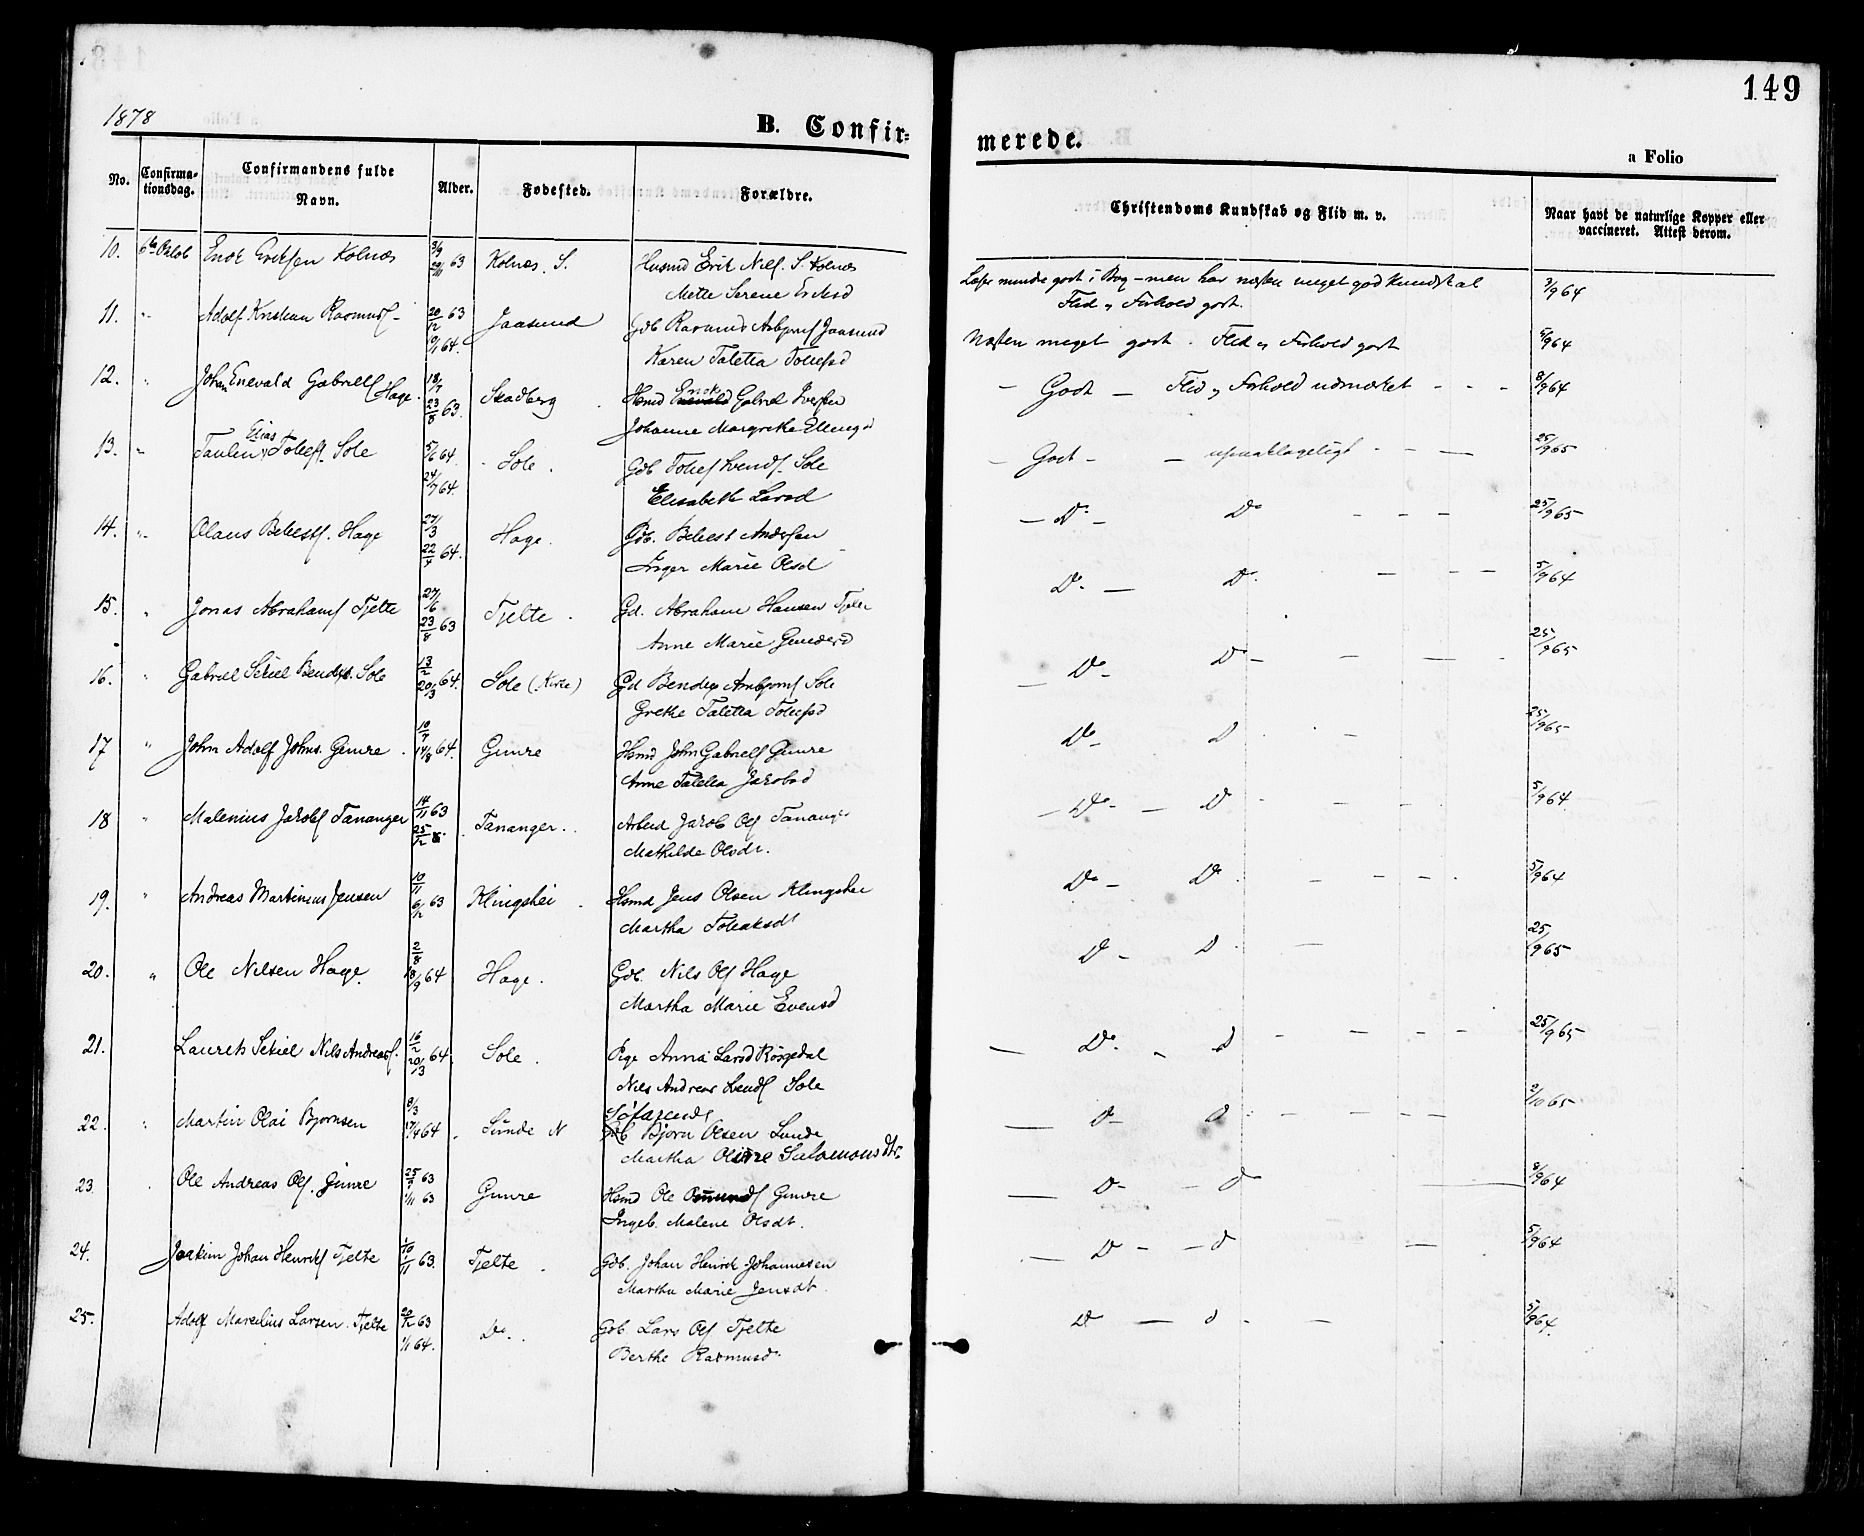 149
1878
B. Confir=
merede.
a Folio
No.
Confirma-
tionsdag.
Confirmandens fulde
Navn.
Alder.
Fødested.
Forældre.
Christendoms Kundskab og Flid m. v.
Naar havt de naturlige Kopper eller
vaccineret. Attest derom.
10. 6te Oktob Enok Eriksen Kolnæs 63 Kolnæs. S. Husmd Erik Nilſ. S. Kolnæs
Mette Serene Eriksd
god Kundskab 3/9 64
Flid og Forhold godt.
11. " Adolf Kristian Rasmusſ 20/12 63 Jaasund Gdb Rasmus Asbjørnſ Jaasund
64. Karen Taletta Tollefsd
Næsten meget godt. Flid og Forhold godt 5/9 64
12. " Johan Enevald Gabrielſ Hage. 18/7 Skadberg Hsmd Gabriel Iversen
23/8 63. Johanne Margrethe Ellingsd
— Godt — Flid og Forhold udmærket - - - 8/9 64
13. " Elias
Tollefſ. Sole 5/6 64. Sole. Gdb Tollef Svendſ. Sole
24/7 64. Elisabeth Larsd
— Godt — — upaaklageligt - - — 25/9 65
14. " Olaus Bekestſ. Hage 27/3 Hage. Gdb. Bekest Andersen
22/4 64. Inger Marie Olsd
— Do — Do - - — 25/9 65
15. " Jonas Abrahamſ Tjelte 27/6 Tjelte. Gd. Abraham Hansen
23/8 63 Anne Marie Gundersd
Do. — Do. — - — 5/9 64
16. " Gabriel Sekiel Bendixs. Sole 13/2 Sole (Kirke) Gd Bendix Asbjørnſ Sole
20/3 64. Grethe Taletta Tollefsd
— Do — Do — — — - 25/9 65
17 " John Adolf Johns. Gimre. 10/7 Gimre Hsmd John Gabrielſ Gimre
14/8 64. Anne Taletta Jakobsd
Do — D — 25/9 65
18 " Malenius Jakobſ Tananger 14/11 63 Tananger. Arbeid Jakob Olſ Tananger
25/12 Mathilde Olsdr.
— Do — — D - - 5/9 64
19. " Andreas Martinius Jensen 10/11 Klingshei Hsmd Jens Olsen Klingshei
6/12 63 Martha Tollaksdt
Do — Do. - — - - 5/9 64
20. " Ole Nilsen Hage. 2/8 Hage. Gdb. Nils Olſ Hage
18/9 64 Martha Marie Evensd
D — D. — 25/9 65
21. Laurets Sekiel Nils Andreasſ. 16/2 Sole. Pige Anna Larsd
20/3 64. Nils Andreas Svendſ Sole
— Do. - D - — - — 25/9 65
22. " Martin Olai Bjørnsen 8/3 Sunde N Søfarende
17/4 64. Gdb Bjørn Olsen Sunde
Martha Oline Salomons dtr.
— D — D - — — — 2/10 65
23. Ole Andreas Olſ. Gimre 63 Gimre Hsmd Ole Gimre
1/11 63 Ingeb. Malene Olsdt.
— D — — D — 8/9 64
24. Joakim Johan Henrikſ Tjelte 63. Tjelte. Gdb. Johan Henrik Johannesen
Martha Marie Jensdt.
— D — — D — 5/9 64
25. Adolf Marselius Larsen Tjelte 63 Do. Gdb. Lars Olſ Tjelte
1/11 64. Berthe Rasmusd.
D — D - — 5/9 64.